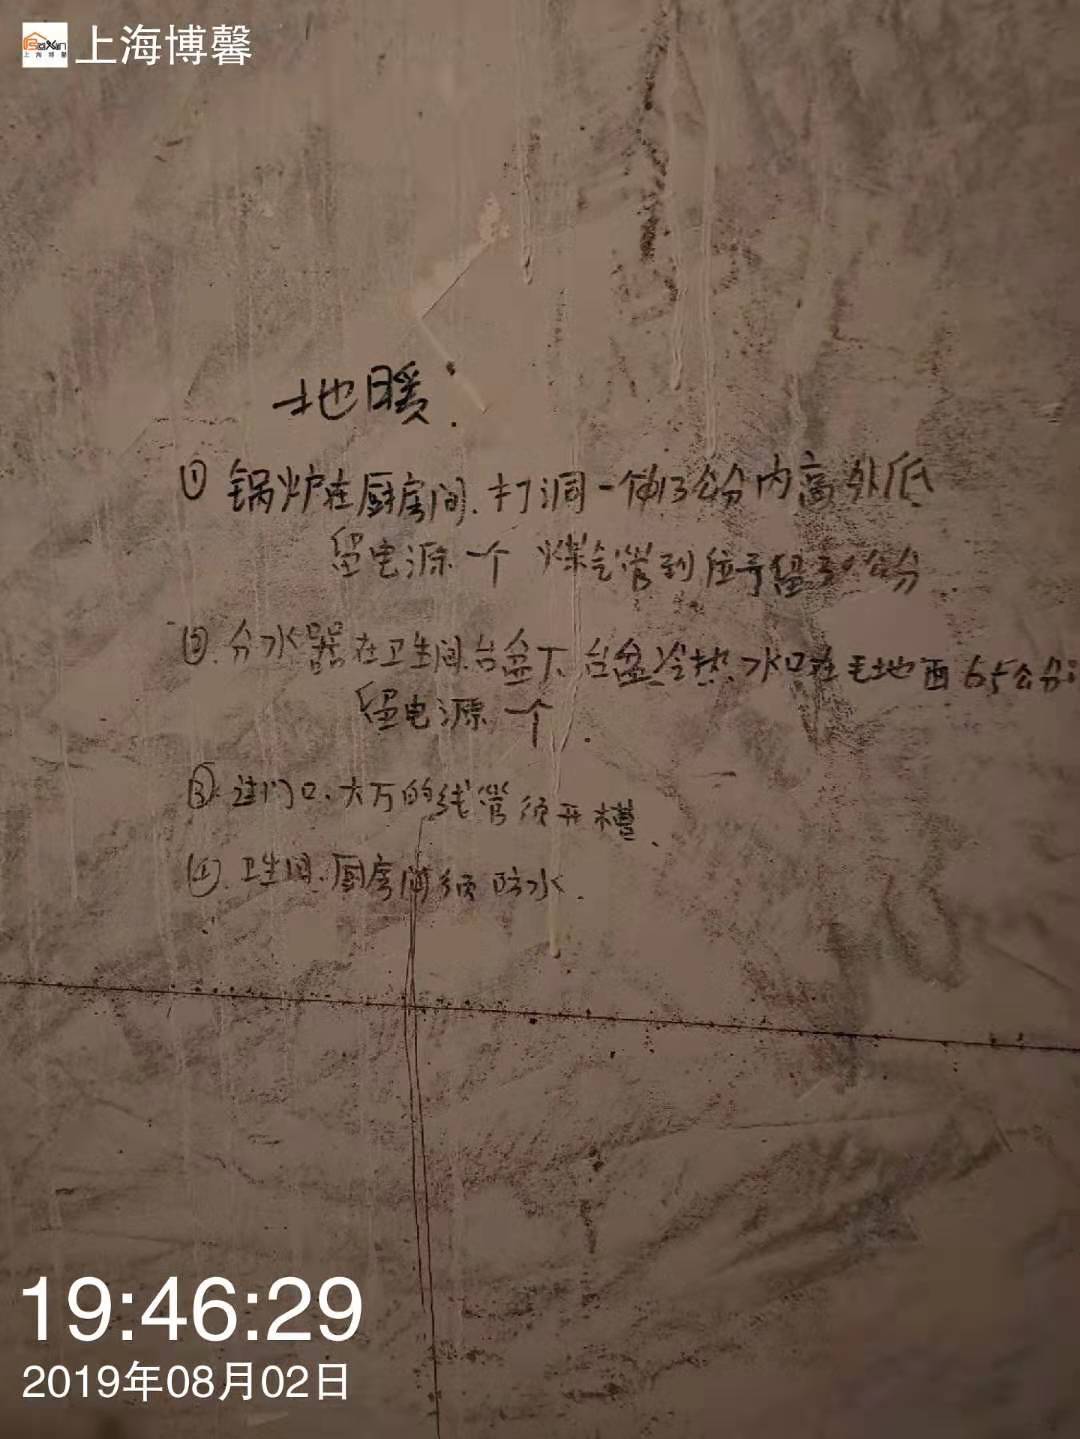 上海博馨
地暖:
① 锅炉在厨房间.打洞一个 13公分内高外低
留电源一个 煤气管到位亏留30公分
②.分水器在卫生间.台盆下.台盆冷热.水口在毛地面65公分
留电源一个.
③.进门口.大万的线管须开槽.
④.卫生间.厨房间须防水.
19:46:29
2019年08月02日